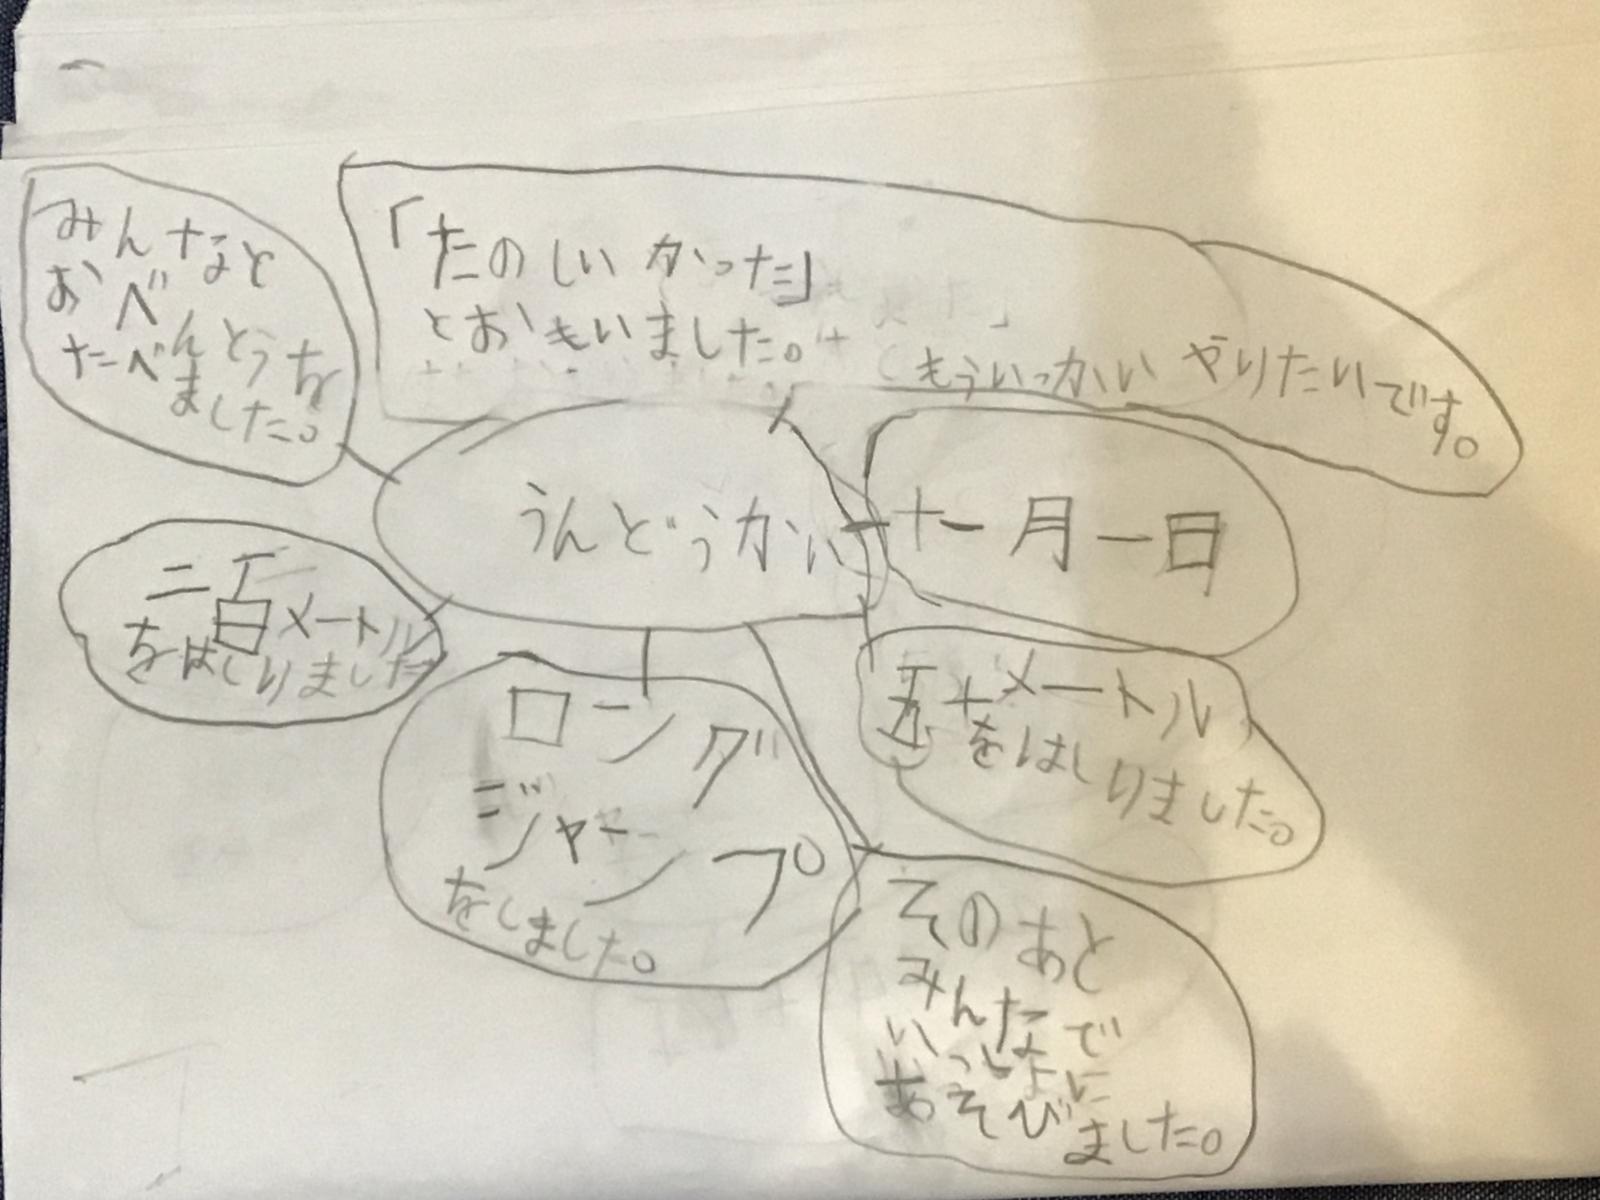 みんなと
おべんとうを
たべ
ました。
「たのしいかった」
とおもいました。
もういっかいやりたいです。
うんどうかい
十一月一日
二百メートル
をはしりました
ロング
ジャー
ンプ
をしました。
五十メートル
をはしりました。
そのあと
みんなで
いっしょに
あそび
ました。